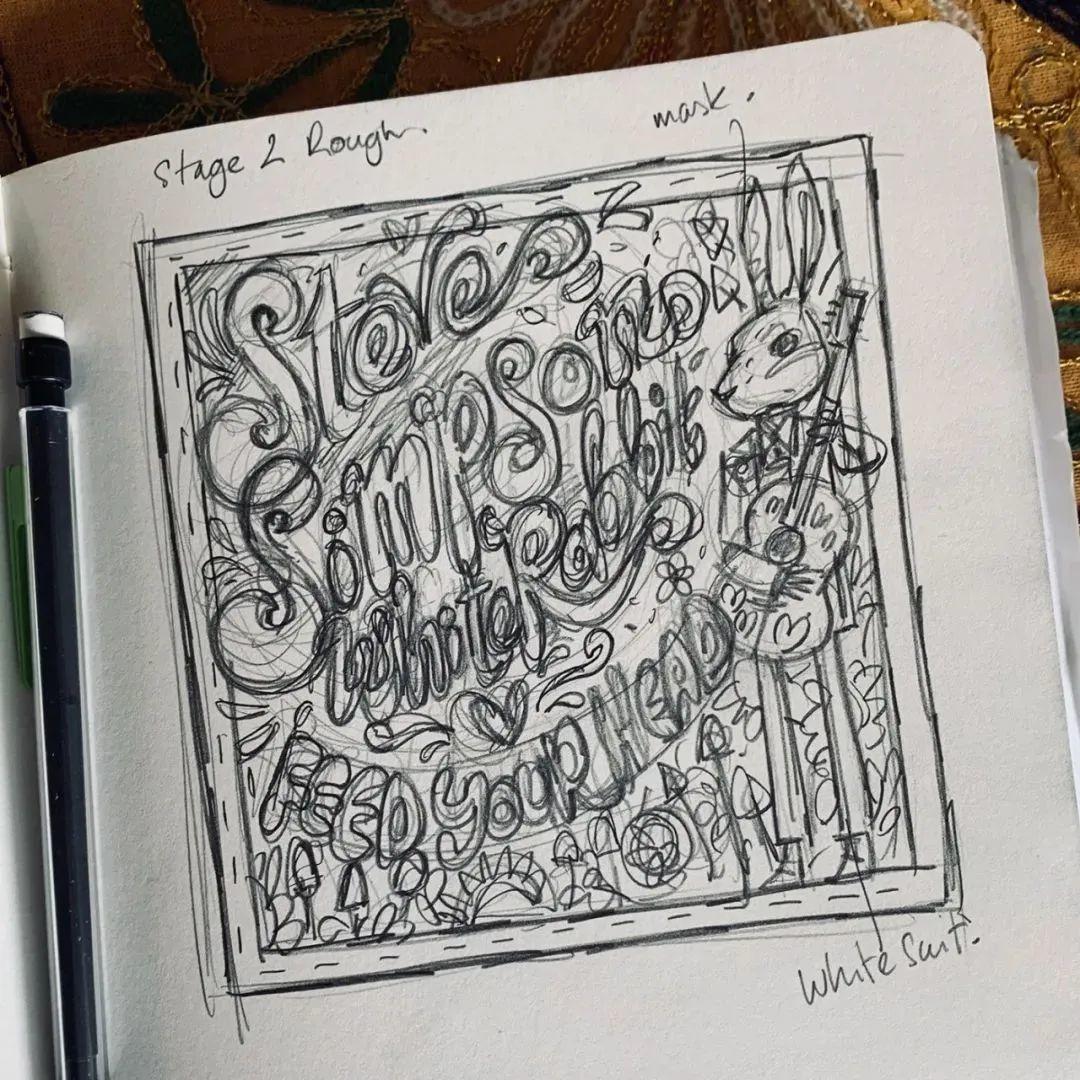 Stage 2 Rough.
mask.
Steve
Simpson
White Rabbit
FEED YouR HEAD
White Suit.